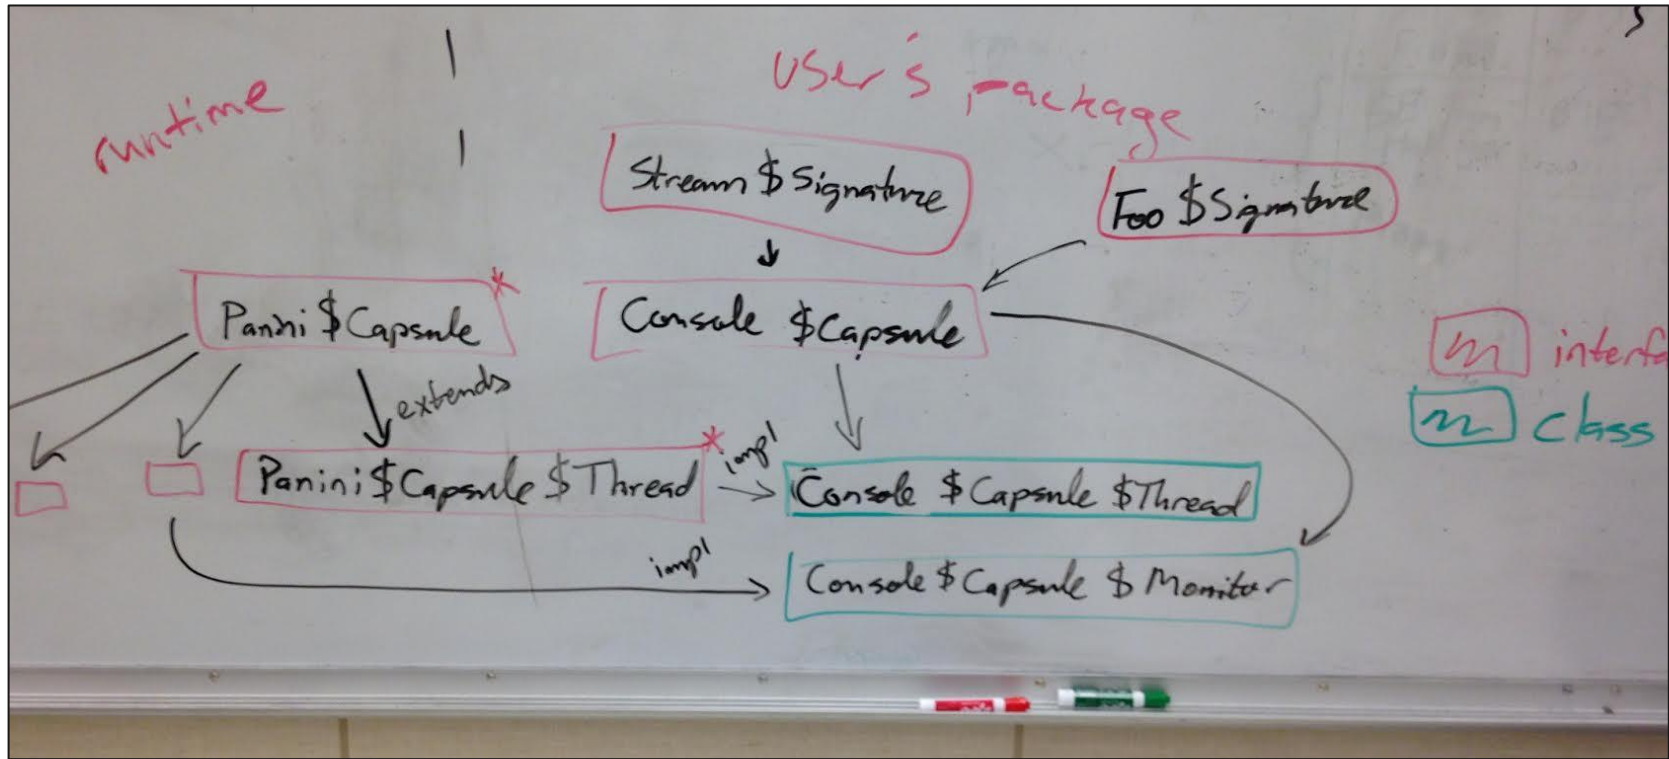 runtime
user's package
Stream $Signature
Foo $Signature
Panini $Capsule *
Console $Capsule
extends
interfa
class
Panini $Capsule $Thread *
impl
Console $Capsule $Thread
impl
Console $Capsule $Monitor